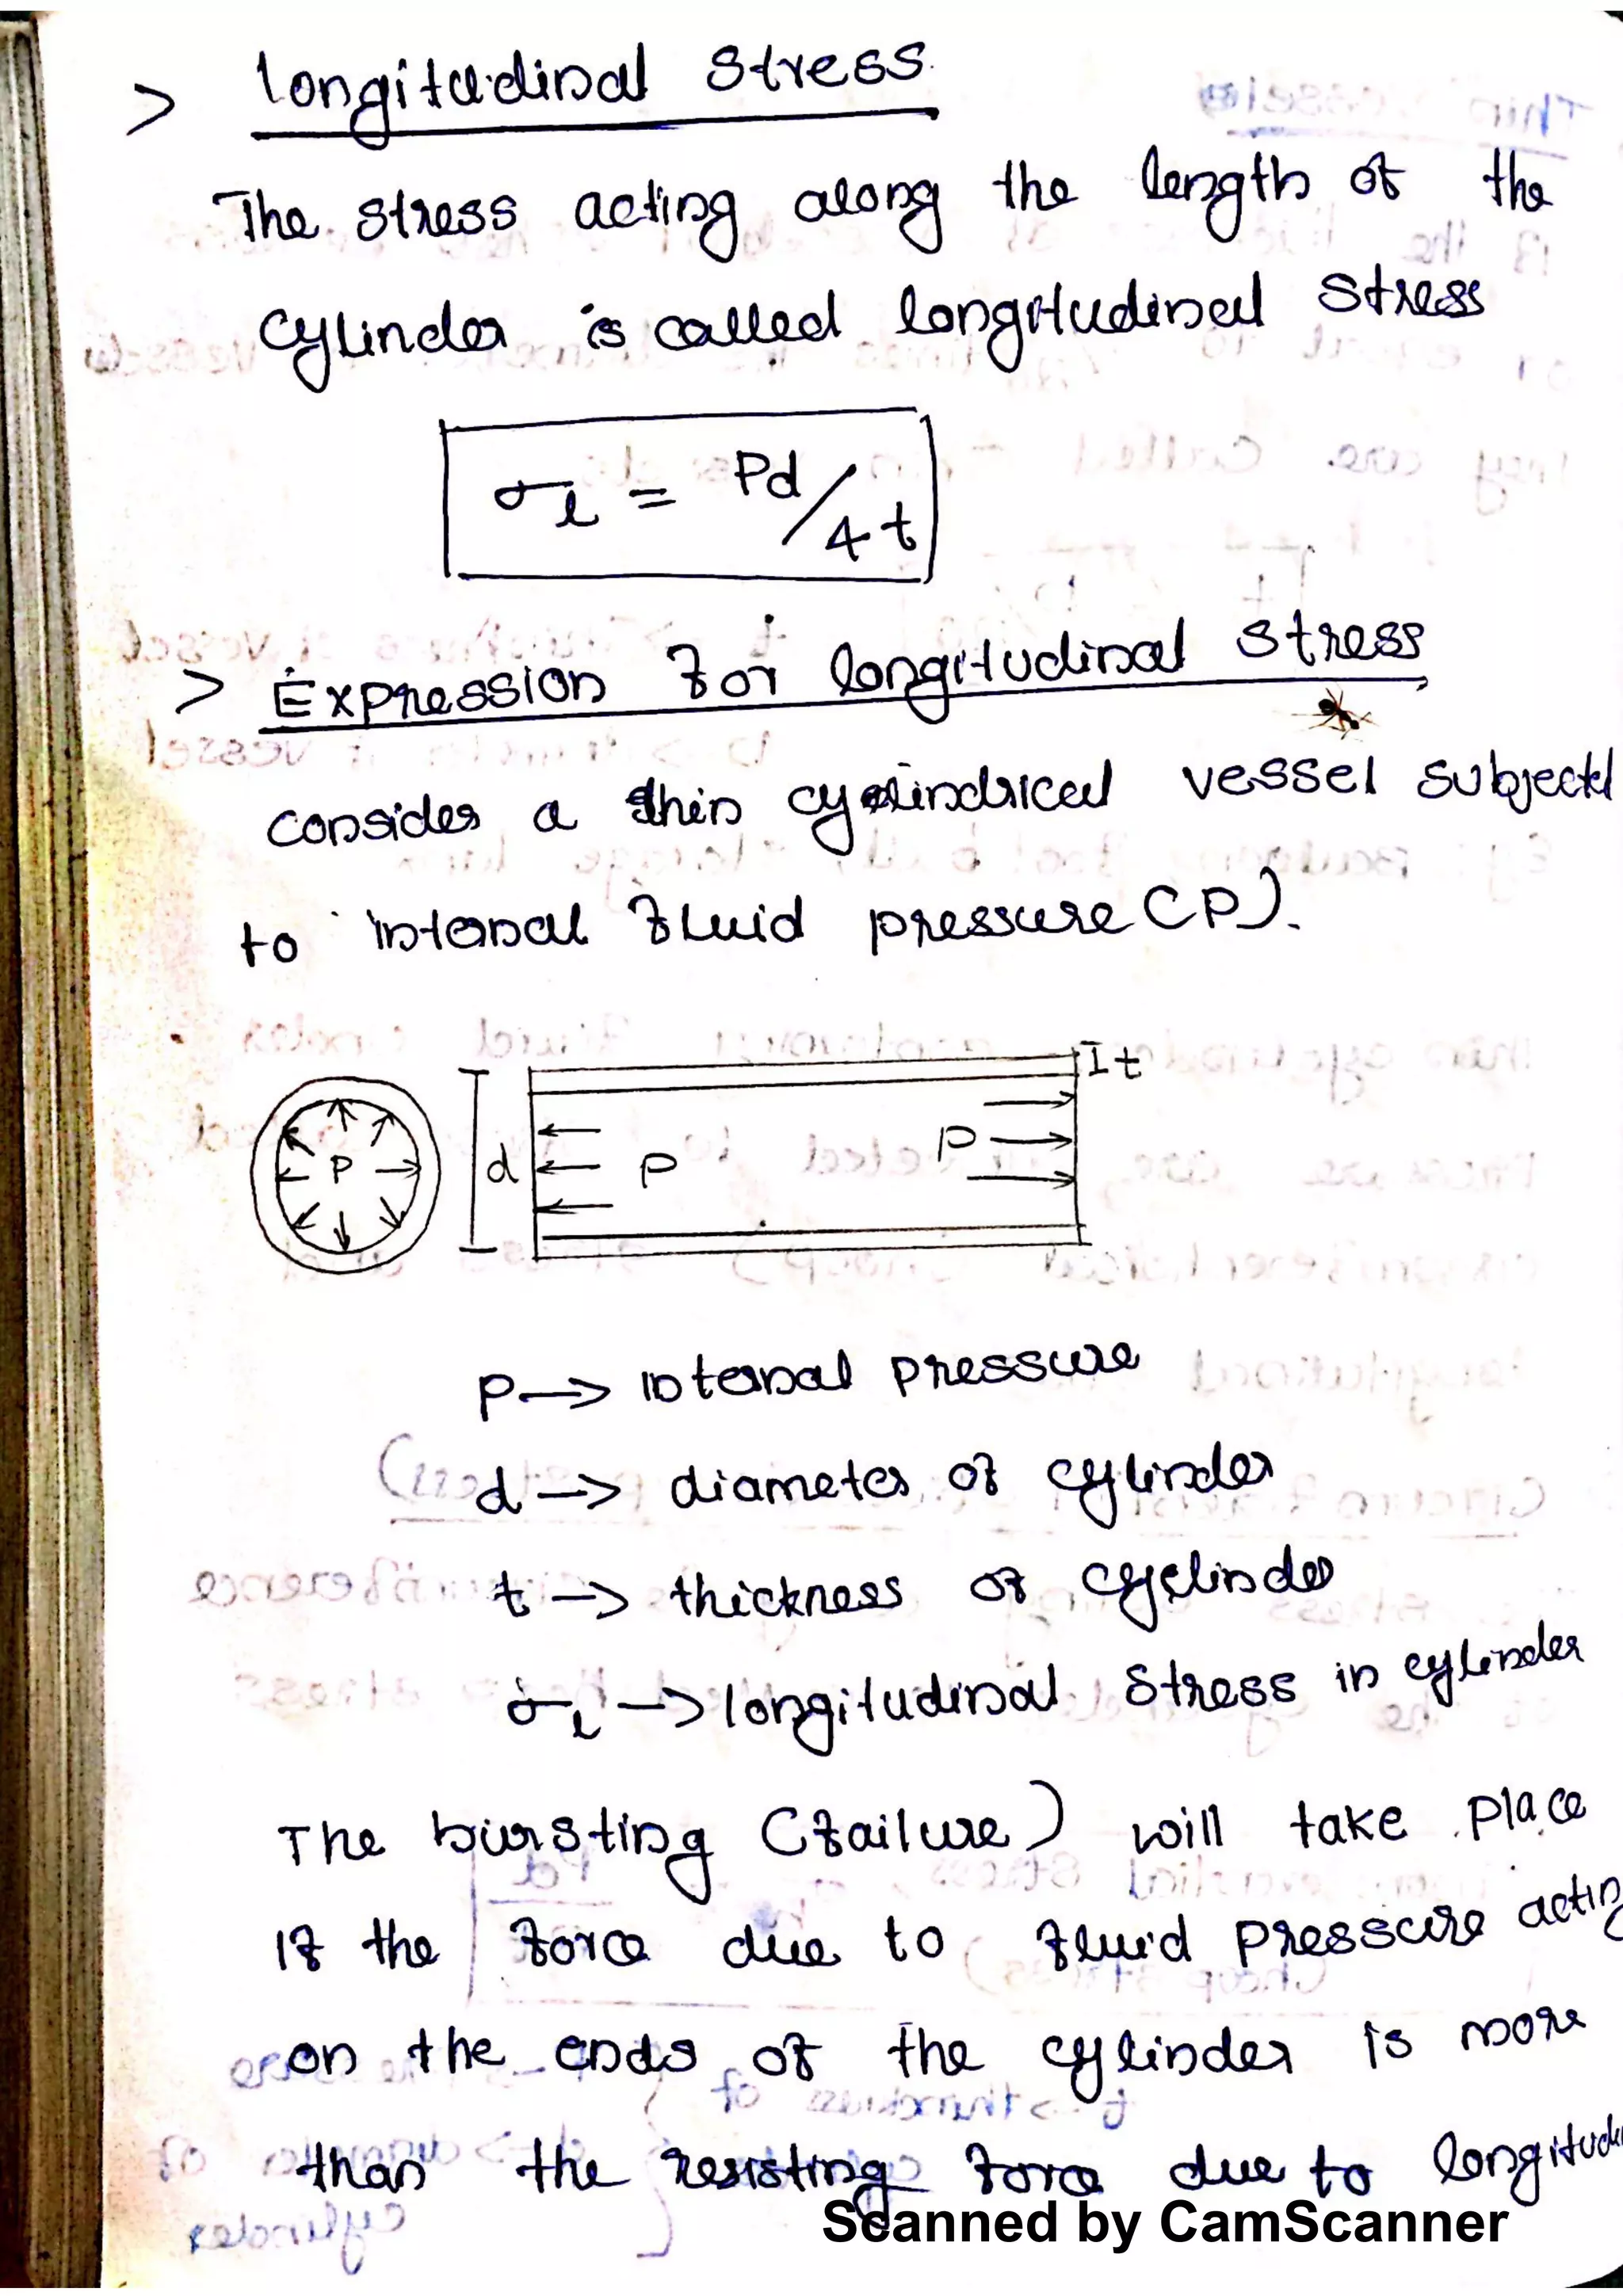 > Longitudinal Stress
The stress acting along the length of the
cylinder is called longitudinal stress
σl = Pd/4t
> Expression for longitudinal stress
consider a thin cylindrical vessel subjected
to internal fluid pressure (P).
I t
P d P P
P → internal pressure
d → diameter of cylinder
t → thickness of cylinder
σl → longitudinal stress in cylinder
The bursting (failure) will take place
If the force due to fluid pressure acting
on the ends of the cylinder is more
than the resisting force due to
Scanned by CamScanner